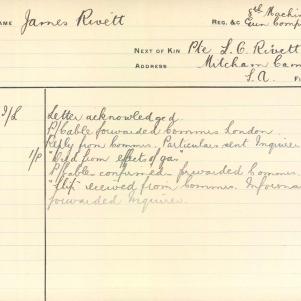 AME James Rivett
8th Machi
REG. &C Gun Comp
NEXT OF KIN Pte L. C. Rivett
ADDRESS Mitcham Cam
S.A. F
I/L Letter acknowledged.
P/Cable forwarded Commrs London.
Reply from Commrs. Particulars sent Inquirer
1/P "Died from effect of gas"
P/Cable confirmed forwarded Commrs.
received from Commrs. Informa
forwarded Inquirer.